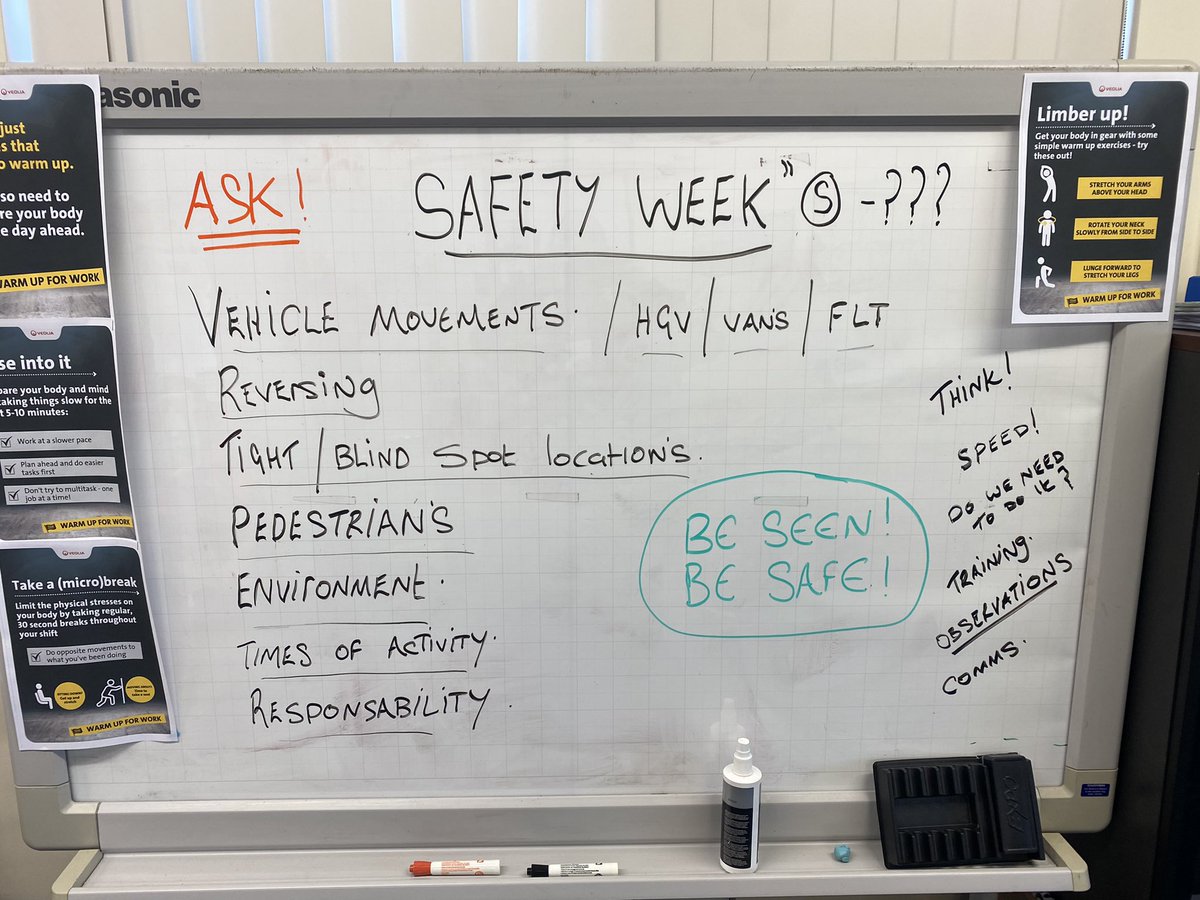 asonic
VEOLIA
just
s that
o warm up.
so need to
re your body
e day ahead.
WARM UP FOR WORK
VEOLIA
se into it
pare your body and mind
taking things slow for the
t 5-10 minutes:
Work at a slower pace
Plan ahead and do easier
tasks first
Don't try to multitask - one
job at a time!
WARM UP FOR WORK
VEOLIA
Take a (micro)break
Limit the physical stresses on
your body by taking regular,
30 second breaks throughout
your shift
Do opposite movements to
what you've been doing
SITTING DOWN?
Get up and
stretch
WARM UP FOR WORK
ASK!
SAFETY WEEK” S - ???
VEHICLE MOVEMENTS. / HGV / VAN'S / FLT
REVERSING
TIGHT / BLIND SPOT LOCATION'S.
PEDESTRIAN'S
ENVIRONMENT.
TIMES OF ACTIVITY.
RESPONSABILITY.
BE SEEN!
BE SAFE!
THINK!
SPEED!
DO WE NEED
TO DO IT?
TRAINING.
OBSERVATIONS
COMMS.
VEOLIA
Limber up!
Get your body in gear with some
simple warm up exercises - try
these out!
STRETCH YOUR ARMS
ABOVE YOUR HEAD
ROTATE YOUR NECK
SLOWLY FROM SIDE TO SIDE
LUNGE FORWARD TO
STRETCH YOUR LEGS
WARM UP FOR WORK